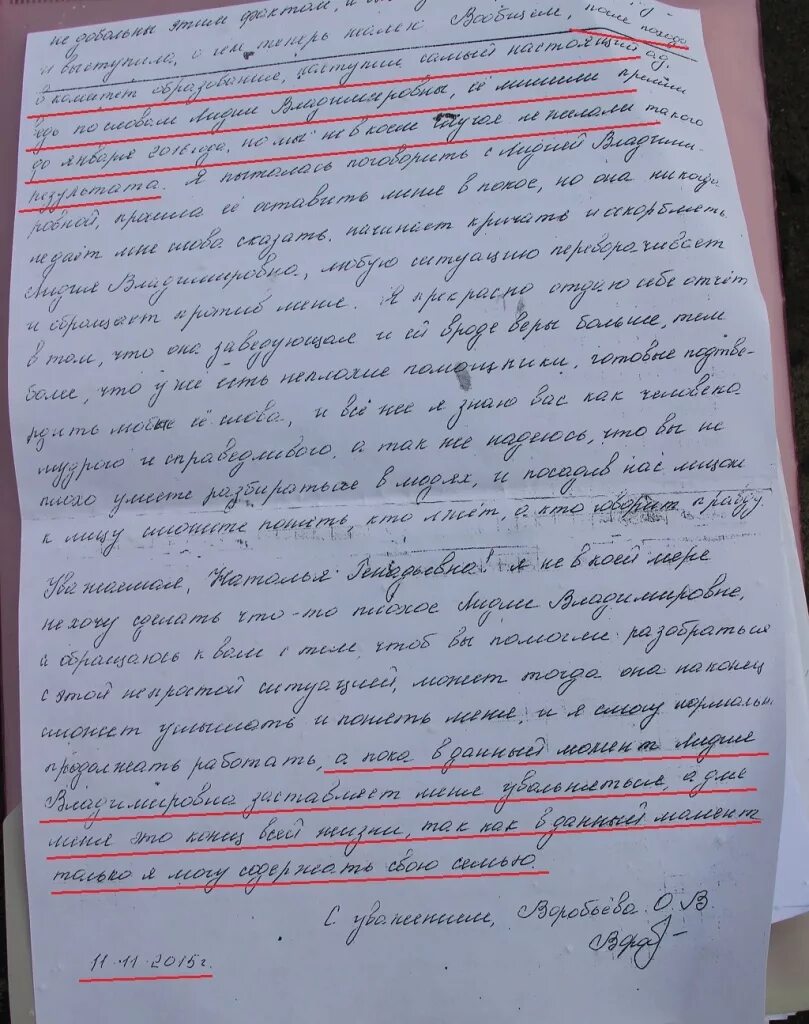 не довольны этим фактом, и
и выступила, о чем теперь жалею. Вообщем, после похода
в комитет образование, наступил самый настоящий ад,
ведь по словам Лидии Владимировны, её лишили премии
до января 2016 года, но мы не в коем случае не желали такого
результата. Я пыталась поговорить с Лидией Владими-
ровной, просила её оставить меня в покое, но она никогда
не даёт мне слова сказать, начинает кричать и оскорблять
Лидия Владимировна, любую ситуацию переворачивает
и обращает против меня. Я прекрасно отдаю себе отчёт
в том, что она заведующая и ей вроде веры больше, тем
более, что уже есть неплохие помощники, готовые подтве-
рдить любые её слова, и всё же я знаю вас как человека
мудрого и справедливого, а так же надеюсь, что вы не
плохо умеете разбираться в людях, и посадив нас лицом
к лицу сможите понять, кто лжёт, а кто говорит правду.
Уважаемая, Наталья Генадьевна! я не в коей мере
не хочу сделать что-то плохое Лидие Владимировне,
а обращаюсь к вам с тем, чтоб вы помогли разобраться
с этой непростой ситуацией, может тогда она наконец
сможет услышать и понять меня, и я смогу нормально
продолжать работать, а пока в данный момент Лидия
Владимировна заставляет меня увольняться, а для
меня это конец всей жизни, так как в данный момент
только я могу содержать свою семью.
С уважением, Воробьёва О.В
11.11.2015г.